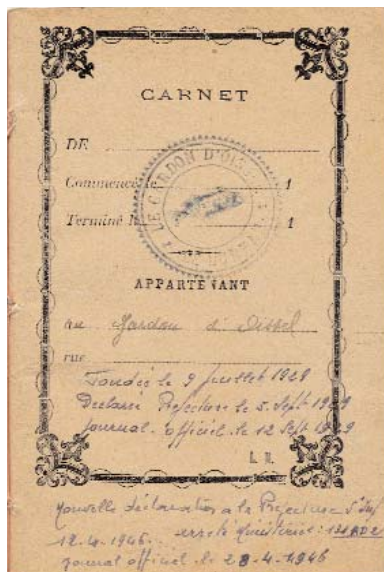 CARNET
DE
LE GARDON D'OISSEL
Commencé le 1
Terminé le 1
APPARTENANT
au Gardon d'Oissel
rue
Fondée le 9 Juillet 1929
Déclaré Préfecture le 5. Sept 1929
Journal. officiel. le 12 Sept 1929
L. N.
Nouvelle déclaration a la Préfecture
12-4-1946. arrêté ministériel:
Journal officiel. le 28-4-1946